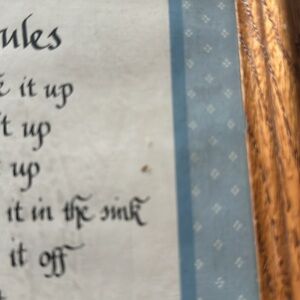 ules
it up
t up
up
it in the sink
it off